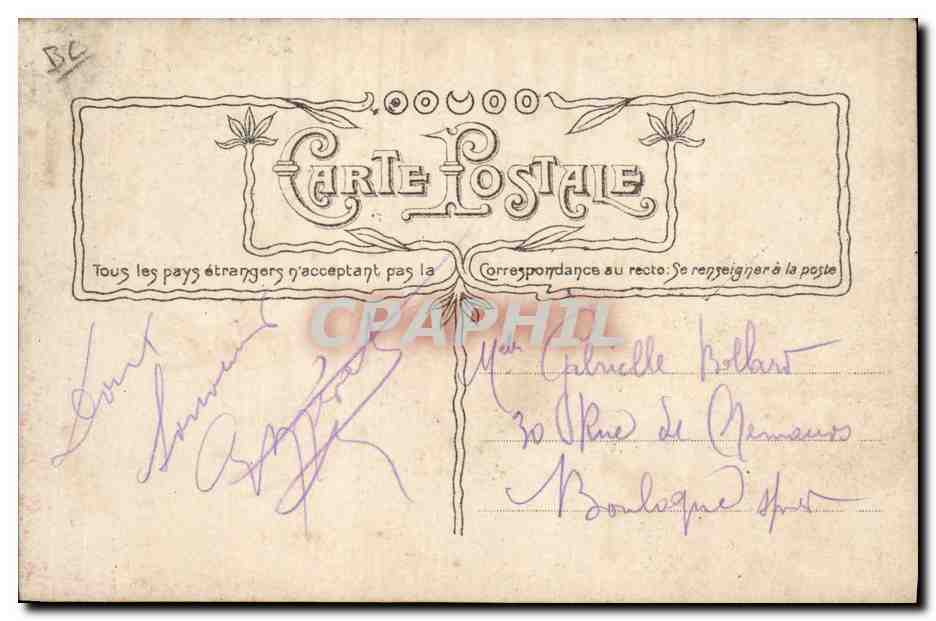 BC
CARTE POSTALE
Tous les pays étrangers n'acceptant pas la Correspondance au recto: Se renseigner à la poste
CPAPHIL
Doux
Souvenir
Melle Gabrielle Bollard
30 Rue de
Boulogne s/mer